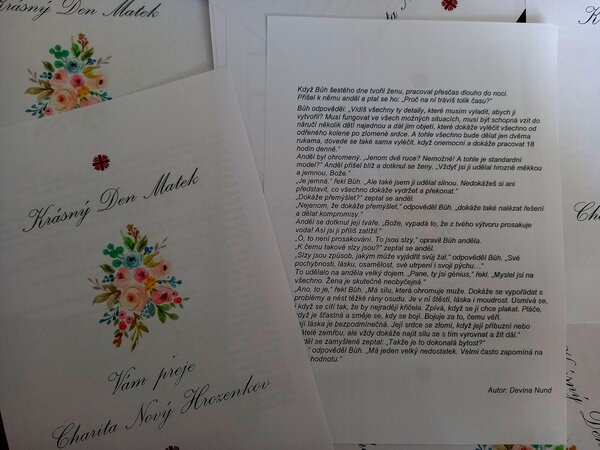 Krásný Den Matek
Krásný Den Matek
Vám přeje
Charita Nový Hrozenkov
Když Bůh šestého dne tvořil ženu, pracoval přesčas dlouho do noci.
Přišel k němu anděl a ptal se ho: „Proč na ní trávíš tolik času?"
Bůh odpověděl: „Vidíš všechny ty detaily, které musím vyladit, abych ji
vytvořil? Musí fungovat ve všech možných situacích, musí být schopná vzít do
náručí několik dětí najednou a dát jim objetí, které dokáže vyléčit všechno od
odřeného kolene po zlomené srdce. A tohle všechno bude dělat jen dvěma
rukama, dovede se také sama vyléčit, když onemocní a dokáže pracovat 18
hodin denně."
Anděl byl ohromený. „Jenom dvě ruce? Nemožné! A tohle je standardní
model?" Anděl přišel blíž a dotknul se ženy. „Vždyť jsi ji udělal hrozně měkkou
a jemnou, Bože."
„Je jemná," řekl Bůh. „Ale také jsem ji udělal silnou. Nedokážeš si ani
představit, co všechno dokáže vydržet a překonat."
„Dokáže přemýšlet?" zeptal se anděl.
„Nejenom, že dokáže přemýšlet," odpověděl Bůh, „dokáže také nalézat řešení
a dělat kompromisy."
Anděl se dotknul její tváře. „Bože, vypadá to, že z tvého výtvoru prosakuje
voda! Asi jsi ji příliš zatížil."
„Ó, to není prosakování. To jsou slzy," opravil Bůh anděla.
„K čemu takové slzy jsou?" zeptal se anděl.
„Slzy jsou způsob, jakým může vyjádřit svůj žal," odpověděl Bůh. „Své
pochybnosti, lásku, osamělost, své utrpení i svoji pýchu…"
To udělalo na anděla velký dojem. „Pane, ty jsi génius," řekl. „Myslel jsi na
všechno. Žena je skutečně neobyčejná."
„Ano, to je," řekl Bůh. „Má sílu, která ohromuje muže. Dokáže se vypořádat s
problémy a nést těžké rány osudu. Je v ní štěstí, láska i moudrost. Usmívá se,
když se cítí tak, že by nejraději křičela. Zpívá, když se jí chce plakat. Pláče,
když je šťastná a směje se, když se bojí. Bojuje za to, čemu věří.
její láska je bezpodmínečná. Její srdce se zlomí, když její příbuzní nebo
přátelé zemřou, ale vždy dokáže najít sílu se s tím vyrovnat a žít dál."
Anděl se zamyšleně zeptal: „Takže je to dokonalá bytost?"
odpověděl Bůh. „Má jeden velký nedostatek. Velmi často zapomíná na
hodnotu."
Autor: Devina Nund